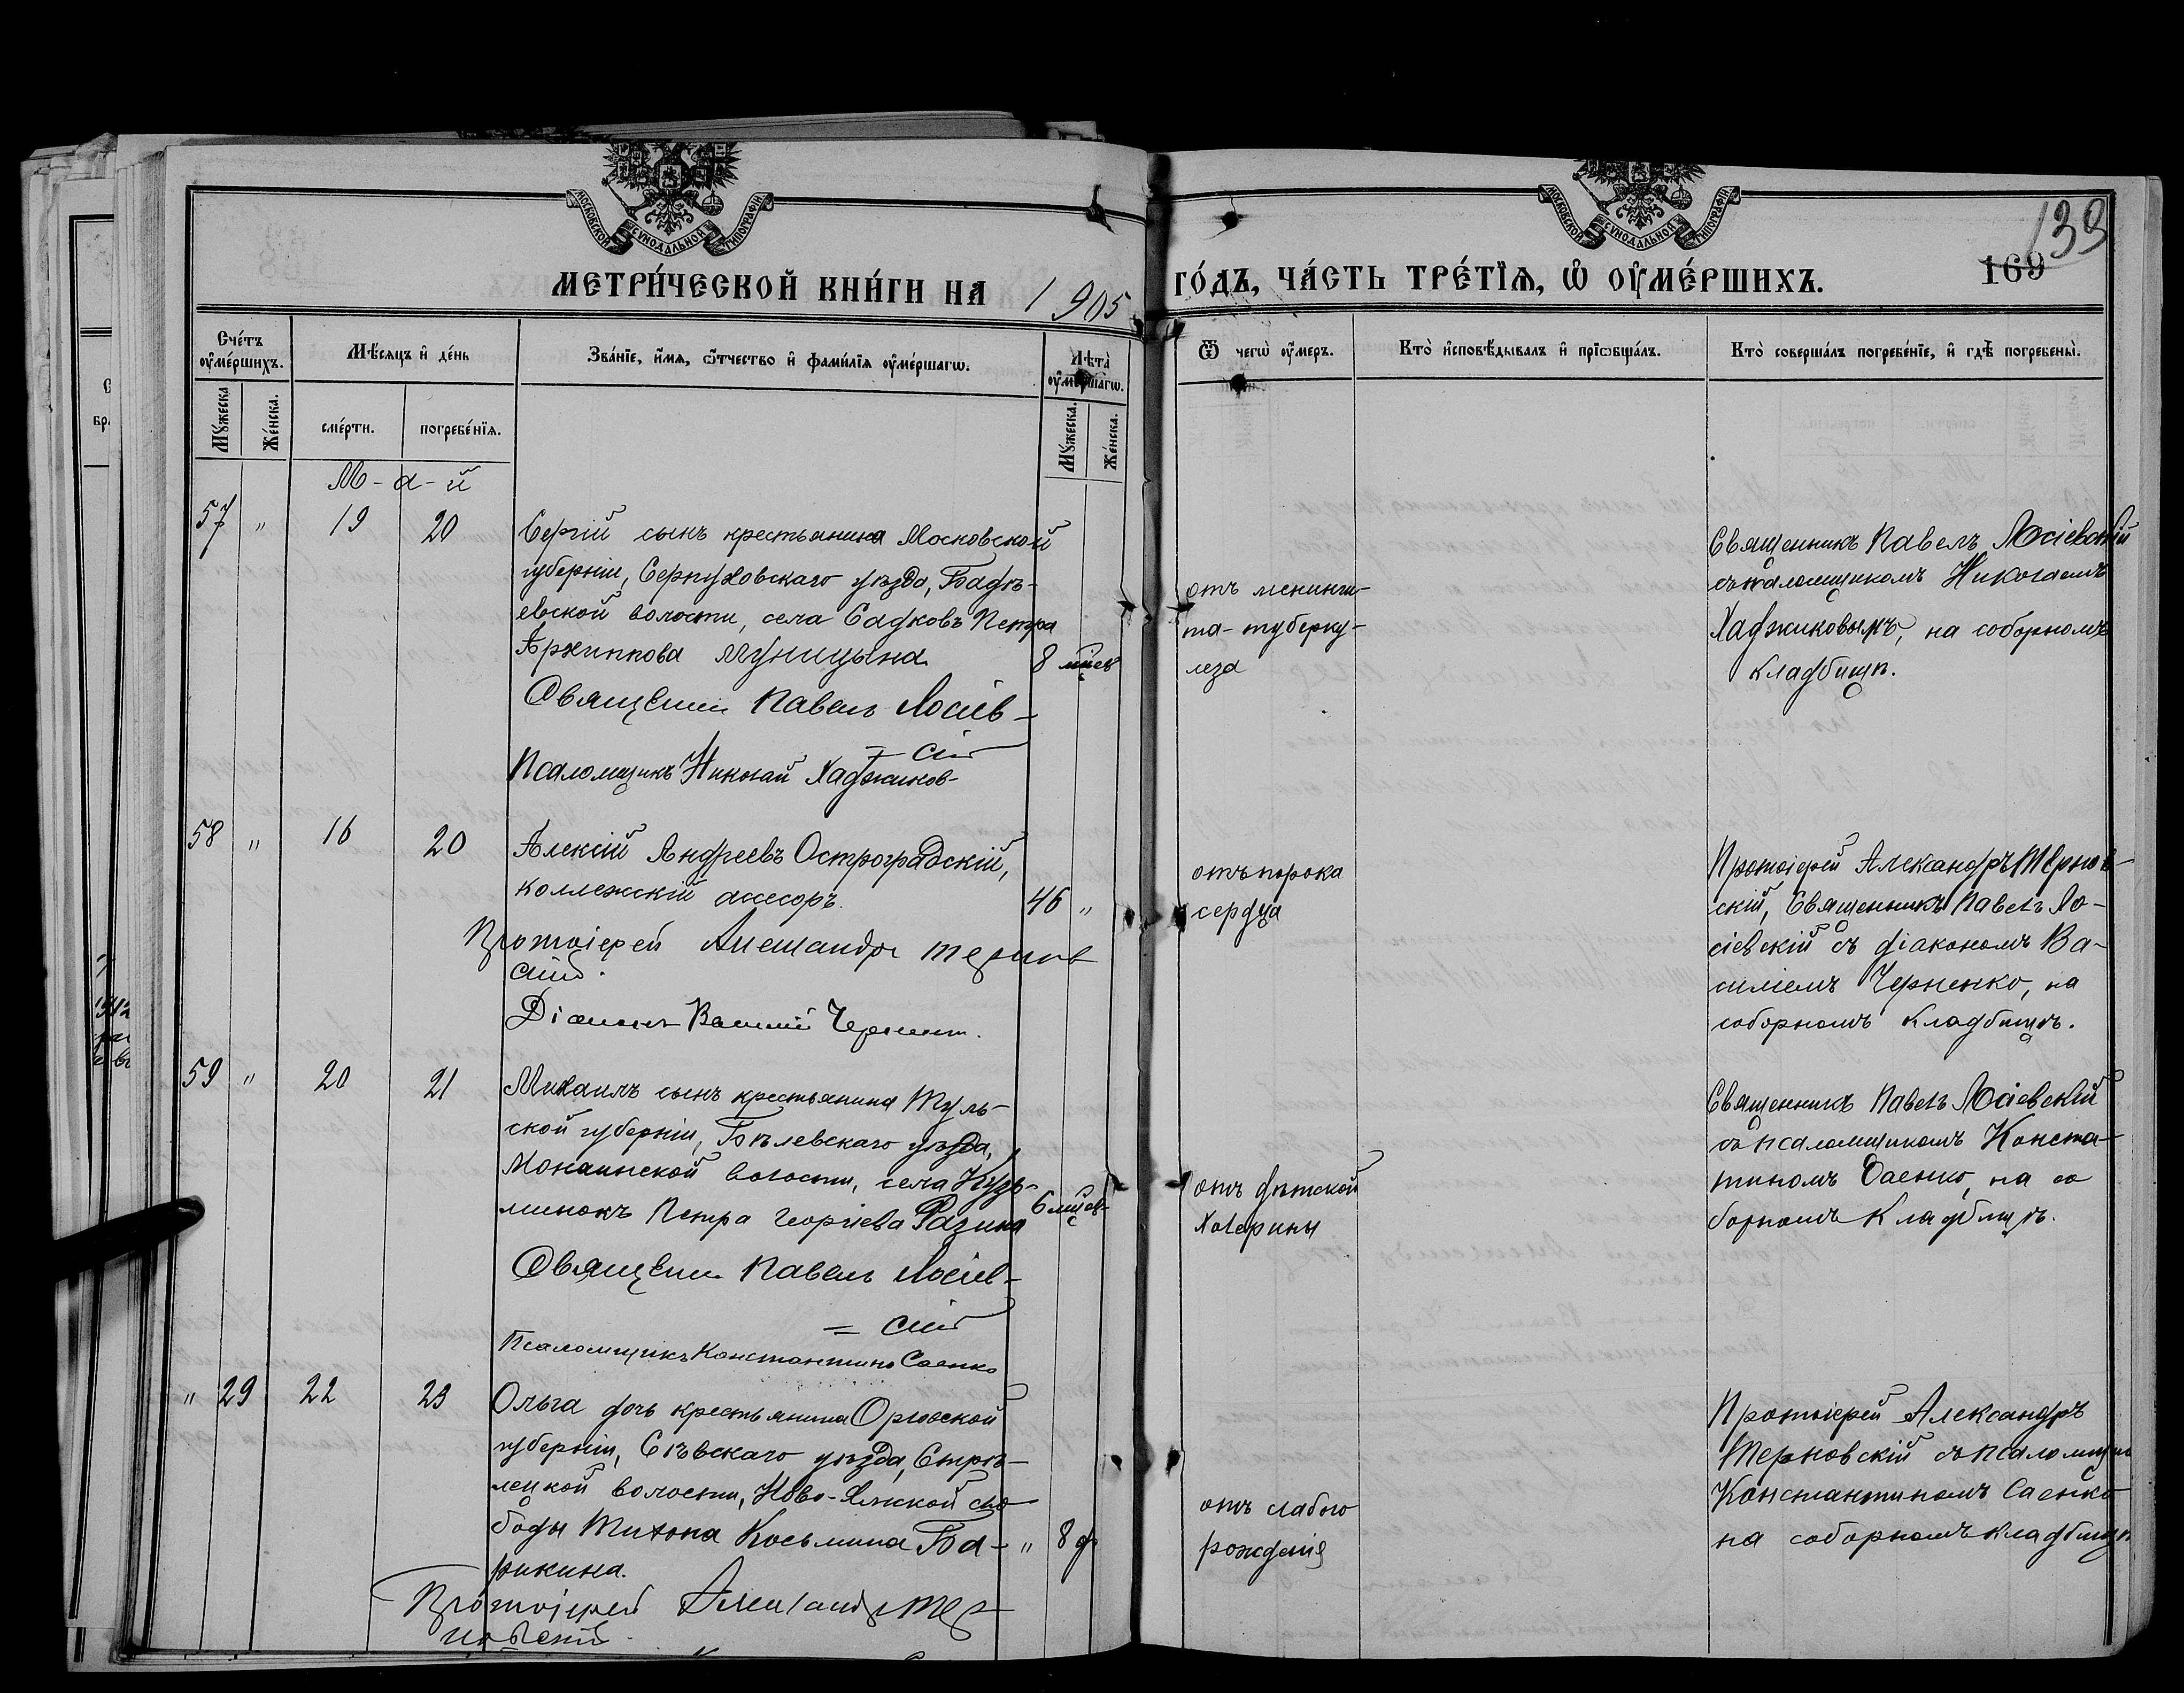 МОСКОВСКОЙ СѴНОДАЛЬНОЙ ТИПОГРАФІИ
МОСКОВСКОЙ СѴНОДАЛЬНОЙ ТИПОГРАФІИ
139
169
МЕТРИ́ЧЕСКОЙ КНИ́ГИ НА 1905 ГО́ДЪ, ЧА́СТЬ ТРЕ́ТЇѦ, Ѡ҆ ОУ҆МЕ́РШИХЪ.
Сче́тъ оу҆ме́ршихъ.
Мѣ́сяцъ и҆ де́нь
Зва́нїе, и҆́мя, ѻ҆́тчество и҆ фами́лїя оу҆ме́ршагѡ.
Лѣта̀ оу҆ме́ршагѡ.
Ѿ чегѡ̀ оу҆́меръ.
Кто̀ и҆сповѣ́дывалъ и҆ прїѻбща́лъ.
Кто̀ соверша́лъ погребе́нїе, и҆ гдѣ̀ погребены̀.
Мꙋ́жеска
Же́нска.
сме́рти.
погребе́нїя.
Мꙋ́жеска.
Же́нска.
М-а-й
57 " 19 20
Сергій сынъ крестьянина Московской
губерніи, Серпуховскаго уѣзда, Бадѣ-
евской волости, села Садковъ Петра
Архиппова
8 мѣсяц
Священник Павелъ Лосіев-
=скій
Псаломщикъ Николай Хаджинов
отъ менинги-
та-туберку-
леза
Священникъ Павелъ Лосіевскій
съ псаломщикомъ Николаемъ
Хаджиновымъ, на соборномъ
кладбищѣ.
58 " 16 20
Алексій Андреевъ Остроградскій,
коллежскій асесоръ.
46 "
Протоіерей Александръ Тернов
скій.
Діаконъ Василій Черненко.
отъ порока
сердца
Протоіерей Александръ Тернов-
скій, Священникъ Павелъ Ло-
сіевскій съ діакономъ Ва-
силіемъ Черненко, на
соборномъ кладбищѣ.
59 " 20 21
Михаилъ сынъ крестьянина Туль-
ской губерніи, Бѣлевскаго уѣзда,
волости, села Кузь-
минокъ Петра Георгіева Разина
6 мѣсяц
Священник Павелъ Лосіев-
=скій
Псаломщикъ Константинъ Саенко
отъ дѣтской
холерины
Священникъ Павелъ Лосіевскій
съ псаломщикомъ Конста-
тиномъ Саенко, на со
борномъ кладбищѣ.
" 29 22 23
Ольга дочь крестьянина Орловской
губерніи, Сѣвскаго уѣзда, Стрѣ-
лецкой волости, Ново-Ямской сло
боды Тихона Косьмина Ба-
рикина.
" 8 д.
Протоіерей Александръ Тер-
новскій.
отъ слабого
рожденія
Протоіерей Александръ
Терновскій съ псаломщик
Константиномъ Саенко
на соборномъ кладбищѣ